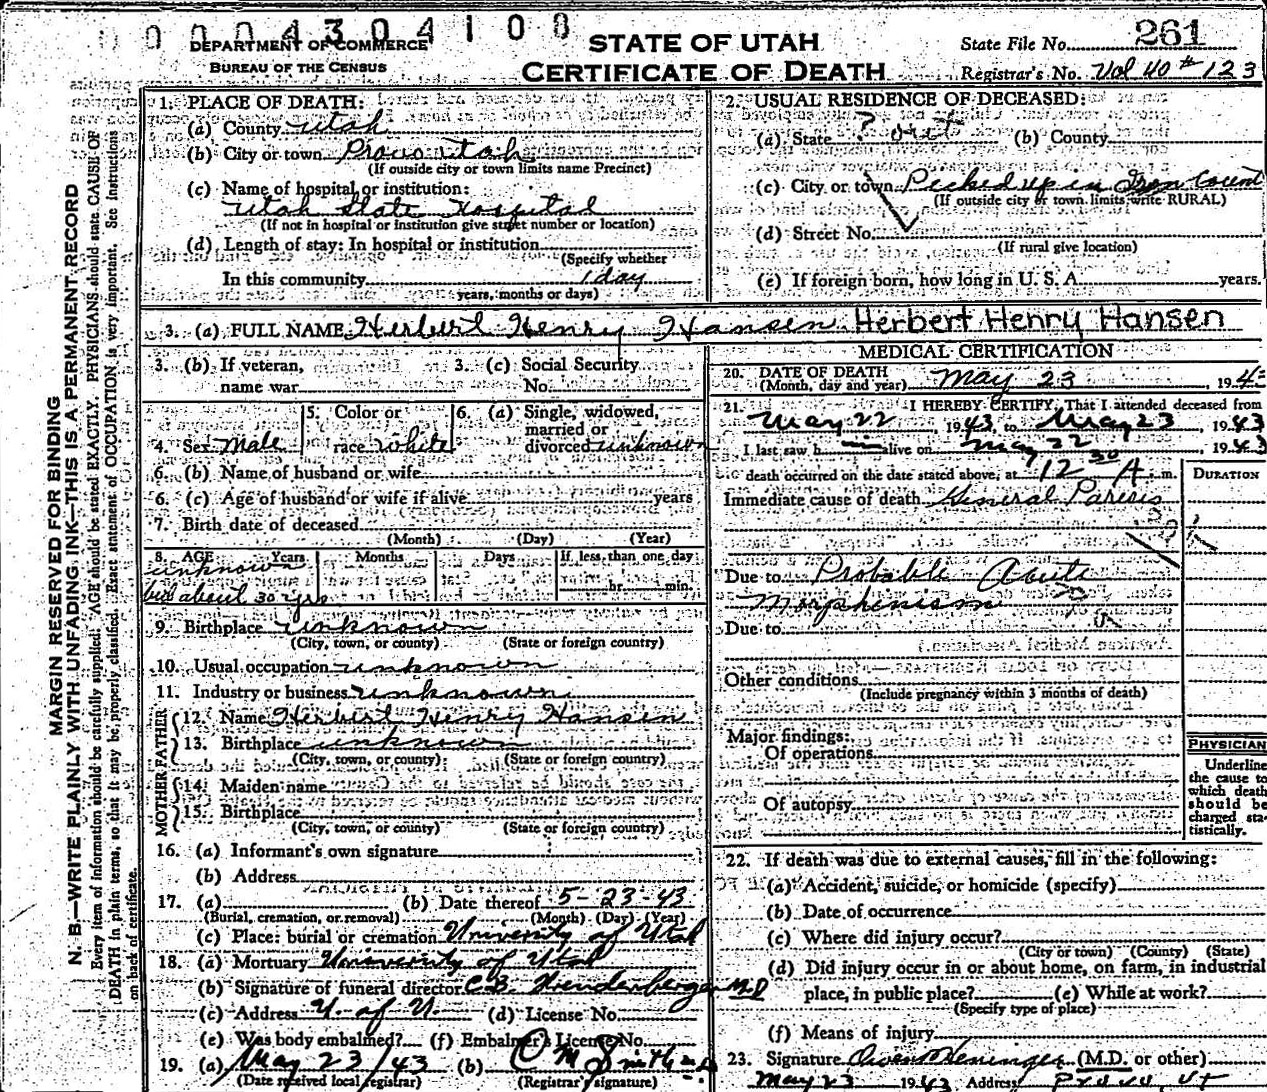 0 0 0 4 3 0 4 1 0 0
DEPARTMENT OF COMMERCE
BUREAU OF THE CENSUS
STATE OF UTAH
CERTIFICATE OF DEATH
State File No. 261
Registrar's No. Vol 40 # 123
MARGIN RESERVED FOR BINDING
N. B.—WRITE PLAINLY WITH UNFADING INK—THIS IS A PERMANENT RECORD
Every item of information should be carefully supplied. AGE should be stated EXACTLY. PHYSICIANS should state CAUSE OF
DEATH in plain terms, so that it may be properly classified. Exact statement of OCCUPATION is very important. See instructions
on back of certificate.
1. PLACE OF DEATH:
(a) County Utah
(b) City or town Provo Utah
(If outside city or town limits name Precinct)
(c) Name of hospital or institution:
Utah State Hospital
(If not in hospital or institution give street number or location)
(d) Length of stay: In hospital or institution
(Specify whether
In this community 1 day
years, months or days)
2. USUAL RESIDENCE OF DECEASED:
(a) State ? (b) County
(c) City or town Picked up in Iron Count
(If outside city or town limits write RURAL)
(d) Street No.
(If rural give location)
(e) If foreign born, how long in U. S. A. years.
3. (a) FULL NAME Herbert Henry Hansen Herbert Henry Hansen
3. (b) If veteran, name war
3. (c) Social Security No.
4. Sex Male
5. Color or race white
6. (a) Single, widowed, married or divorced unknown
6. (b) Name of husband or wife
6. (c) Age of husband or wife if alive years
7. Birth date of deceased
(Month) (Day) (Year)
8. AGE Years Months Days If less than one day
unknown
but about 30 yrs hr. min.
9. Birthplace unknown
(City, town, or county) (State or foreign country)
10. Usual occupation unknown
11. Industry or business unknown
FATHER
12. Name Herbert Henry Hansen
13. Birthplace unknown
(City, town, or county) (State or foreign country)
MOTHER
14. Maiden name
15. Birthplace
(City, town, or county) (State or foreign country)
16. (a) Informant's own signature
(b) Address
17. (a) (b) Date thereof 5-23-43
(Burial, cremation, or removal) (Month) (Day) (Year)
(c) Place: burial or cremation University of Utah
18. (a) Mortuary University of Utah
(b) Signature of funeral director C.B. MD
(c) Address U. of U. (d) License No.
(e) Was body embalmed? (f) Embalmer's License No.
19. (a) May 23/43 (b) O M Smith
(Date received local registrar) (Registrar's signature)
MEDICAL CERTIFICATION
20. DATE OF DEATH
(Month, day and year) May 23, 1943
21. I HEREBY CERTIFY, That I attended deceased from
May 22, 1943, to May 23, 1943
I last saw h alive on May 22, 1943
death occurred on the date stated above, at 12 30 A. m.
DURATION
Immediate cause of death General Paresis
Due to Probable Acute
Morphenism
Due to
Other conditions
(Include pregnancy within 3 months of death)
Major findings:
Of operations
Of autopsy
PHYSICIAN
Underline
the cause to
which death
should be
charged sta-
tistically.
22. If death was due to external causes, fill in the following:
(a) Accident, suicide, or homicide (specify)
(b) Date of occurrence
(c) Where did injury occur?
(City or town) (County) (State)
(d) Did injury occur in or about home, on farm, in industrial
place, in public place? (e) While at work?
(Specify type of place)
(f) Means of injury
23. Signature Owen Heninger (M.D. or other)
May 23 1943 Address Provo, Ut